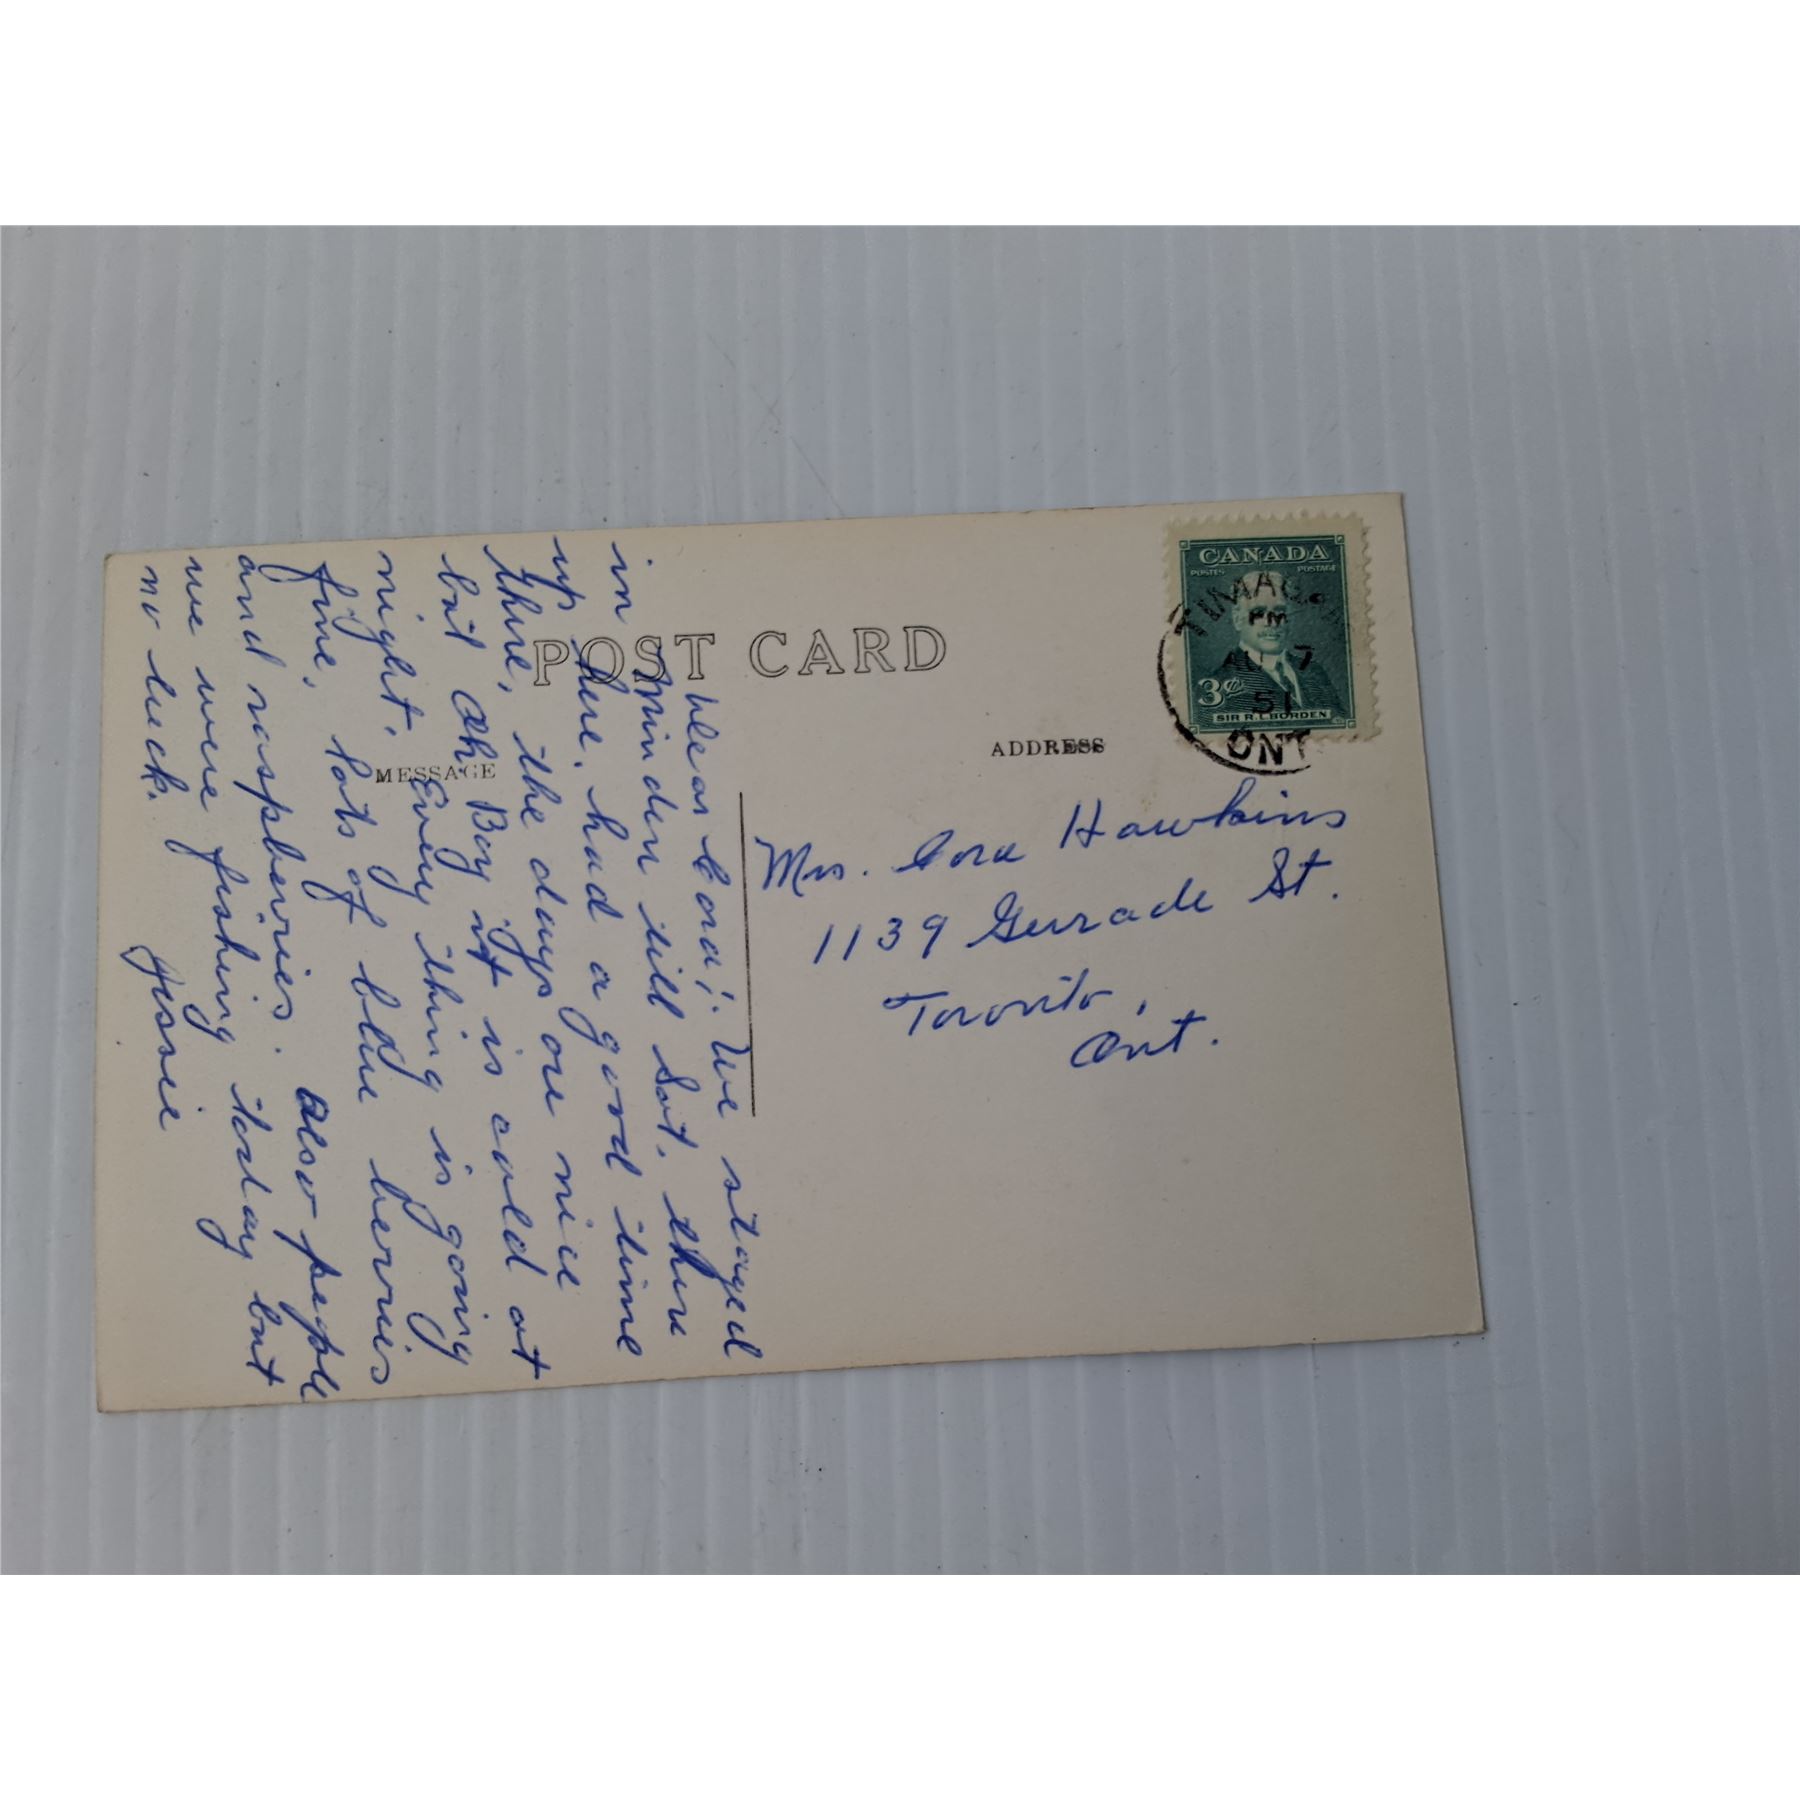 POST CARD
MESSAGE
ADDRESS
CANADA
POSTES POSTAGE
3¢
SIR R.L. BORDEN
PM
AU 7
51
ONT
Dear Cora; We stayed
in Minden till Sat. there
up here, had a good time
there, the days are nice
but Oh Boy it is cold at
night. Every thing is going
fine, lots of blue berries
and raspberries. Also people
we were fishing to-day but
no luck.
Jessie
Mrs. Cora Hawkins
1139 Gerrade St.
Toronto,
Ont.